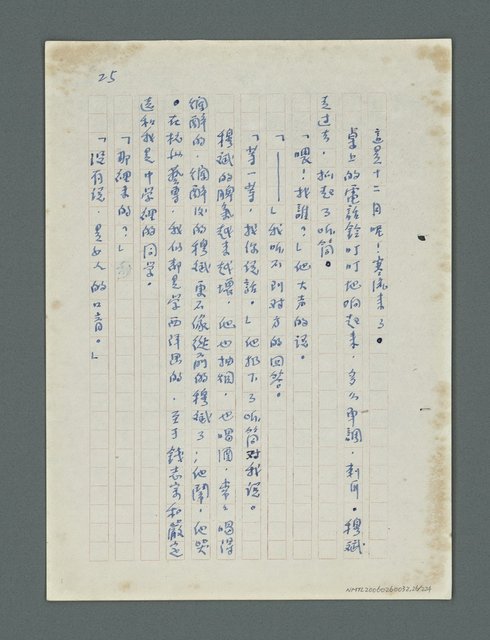 25
這是十二月呢！寒流來了。
桌上的電話鈴叮叮地响起來，多么單調，刺耳。穆斌
走过去，抓起了听筒。
「喂！找誰？」他大声的說。
「───」我听不到对方的回答。
「等一等，找你說話。」他扔下了听筒对我說。
穆斌的脾氣越來越壞，他也抽烟，也喝酒，常々喝得
爛醉的，爛醉后的穆斌更不像從前的穆斌了；他鬧，他哭
。在杭州藝專，我们都是学西洋畫的，至于錢志宗和嚴定
遠和我是中学裡的同学。
「那裡來的？」
「沒有說，是女人的口音。」
NMTL20060260032,26/224